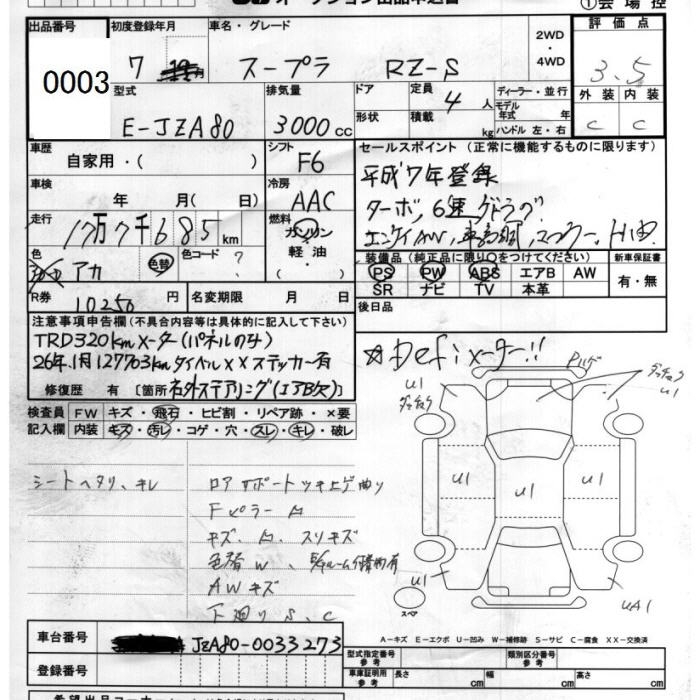 出品番号 初度登録年月 車名・グレード 2WD・4WD 評価点
0003 7 スープラ RZ-S 3.5
型式 排気量 ドア 定員 4人 ディーラー・並行
外装 内装
E-JZA80 3000cc 形状 積載 kg モデル年式 年
ハンドル 左・右 C C
車歴 シフト セールスポイント (正常に機能するものに限ります)
自家用・( ) F6 平成7年登録
車検 冷房 ターボ 6速 ゲトラグ
年 月(日) AAC
走行 燃料
17万7千685km ガソリン 軽油・( )
装備品 (純正品に限り○をつけてください) 新車保証書
色 色替 色コード ?
アカ PS PW ABS エアB AW 有・無
SR ナビ TV 本革
R券 10250円 名変期限 月 日 後日品
注意事項申告欄(不具合内容等は具体的に記入して下さい)
TRD320kmメーター(パネルのみ) ☆Defiメーター!!
26年1月127703km
修復歴 有 [箇所 社外ステアリング(エアB欠)]
検査員 FW キズ・飛石・ヒビ割・リペア跡・×要
記入欄 内装 キズ・汚レ・コゲ・穴・スレ・キレ・破レ
シートヘタリ、キレ ロアサポートツキ上ゲ曲り
Fピラー
キズ、 スリキズ
色替W
AWキズ
下廻りS、C
U1
U1
U1 U1 U1
U1
UA1
スペア
A−キズ E−エクボ U−凹み W−補修跡 S−サビ C−腐食 XX−交換済
車台番号 JZA80-0033273
型式指定番号 参考 類別区分番号 参考
登録番号 車庫証明用 参考 長さ cm 幅 cm 高さ cm